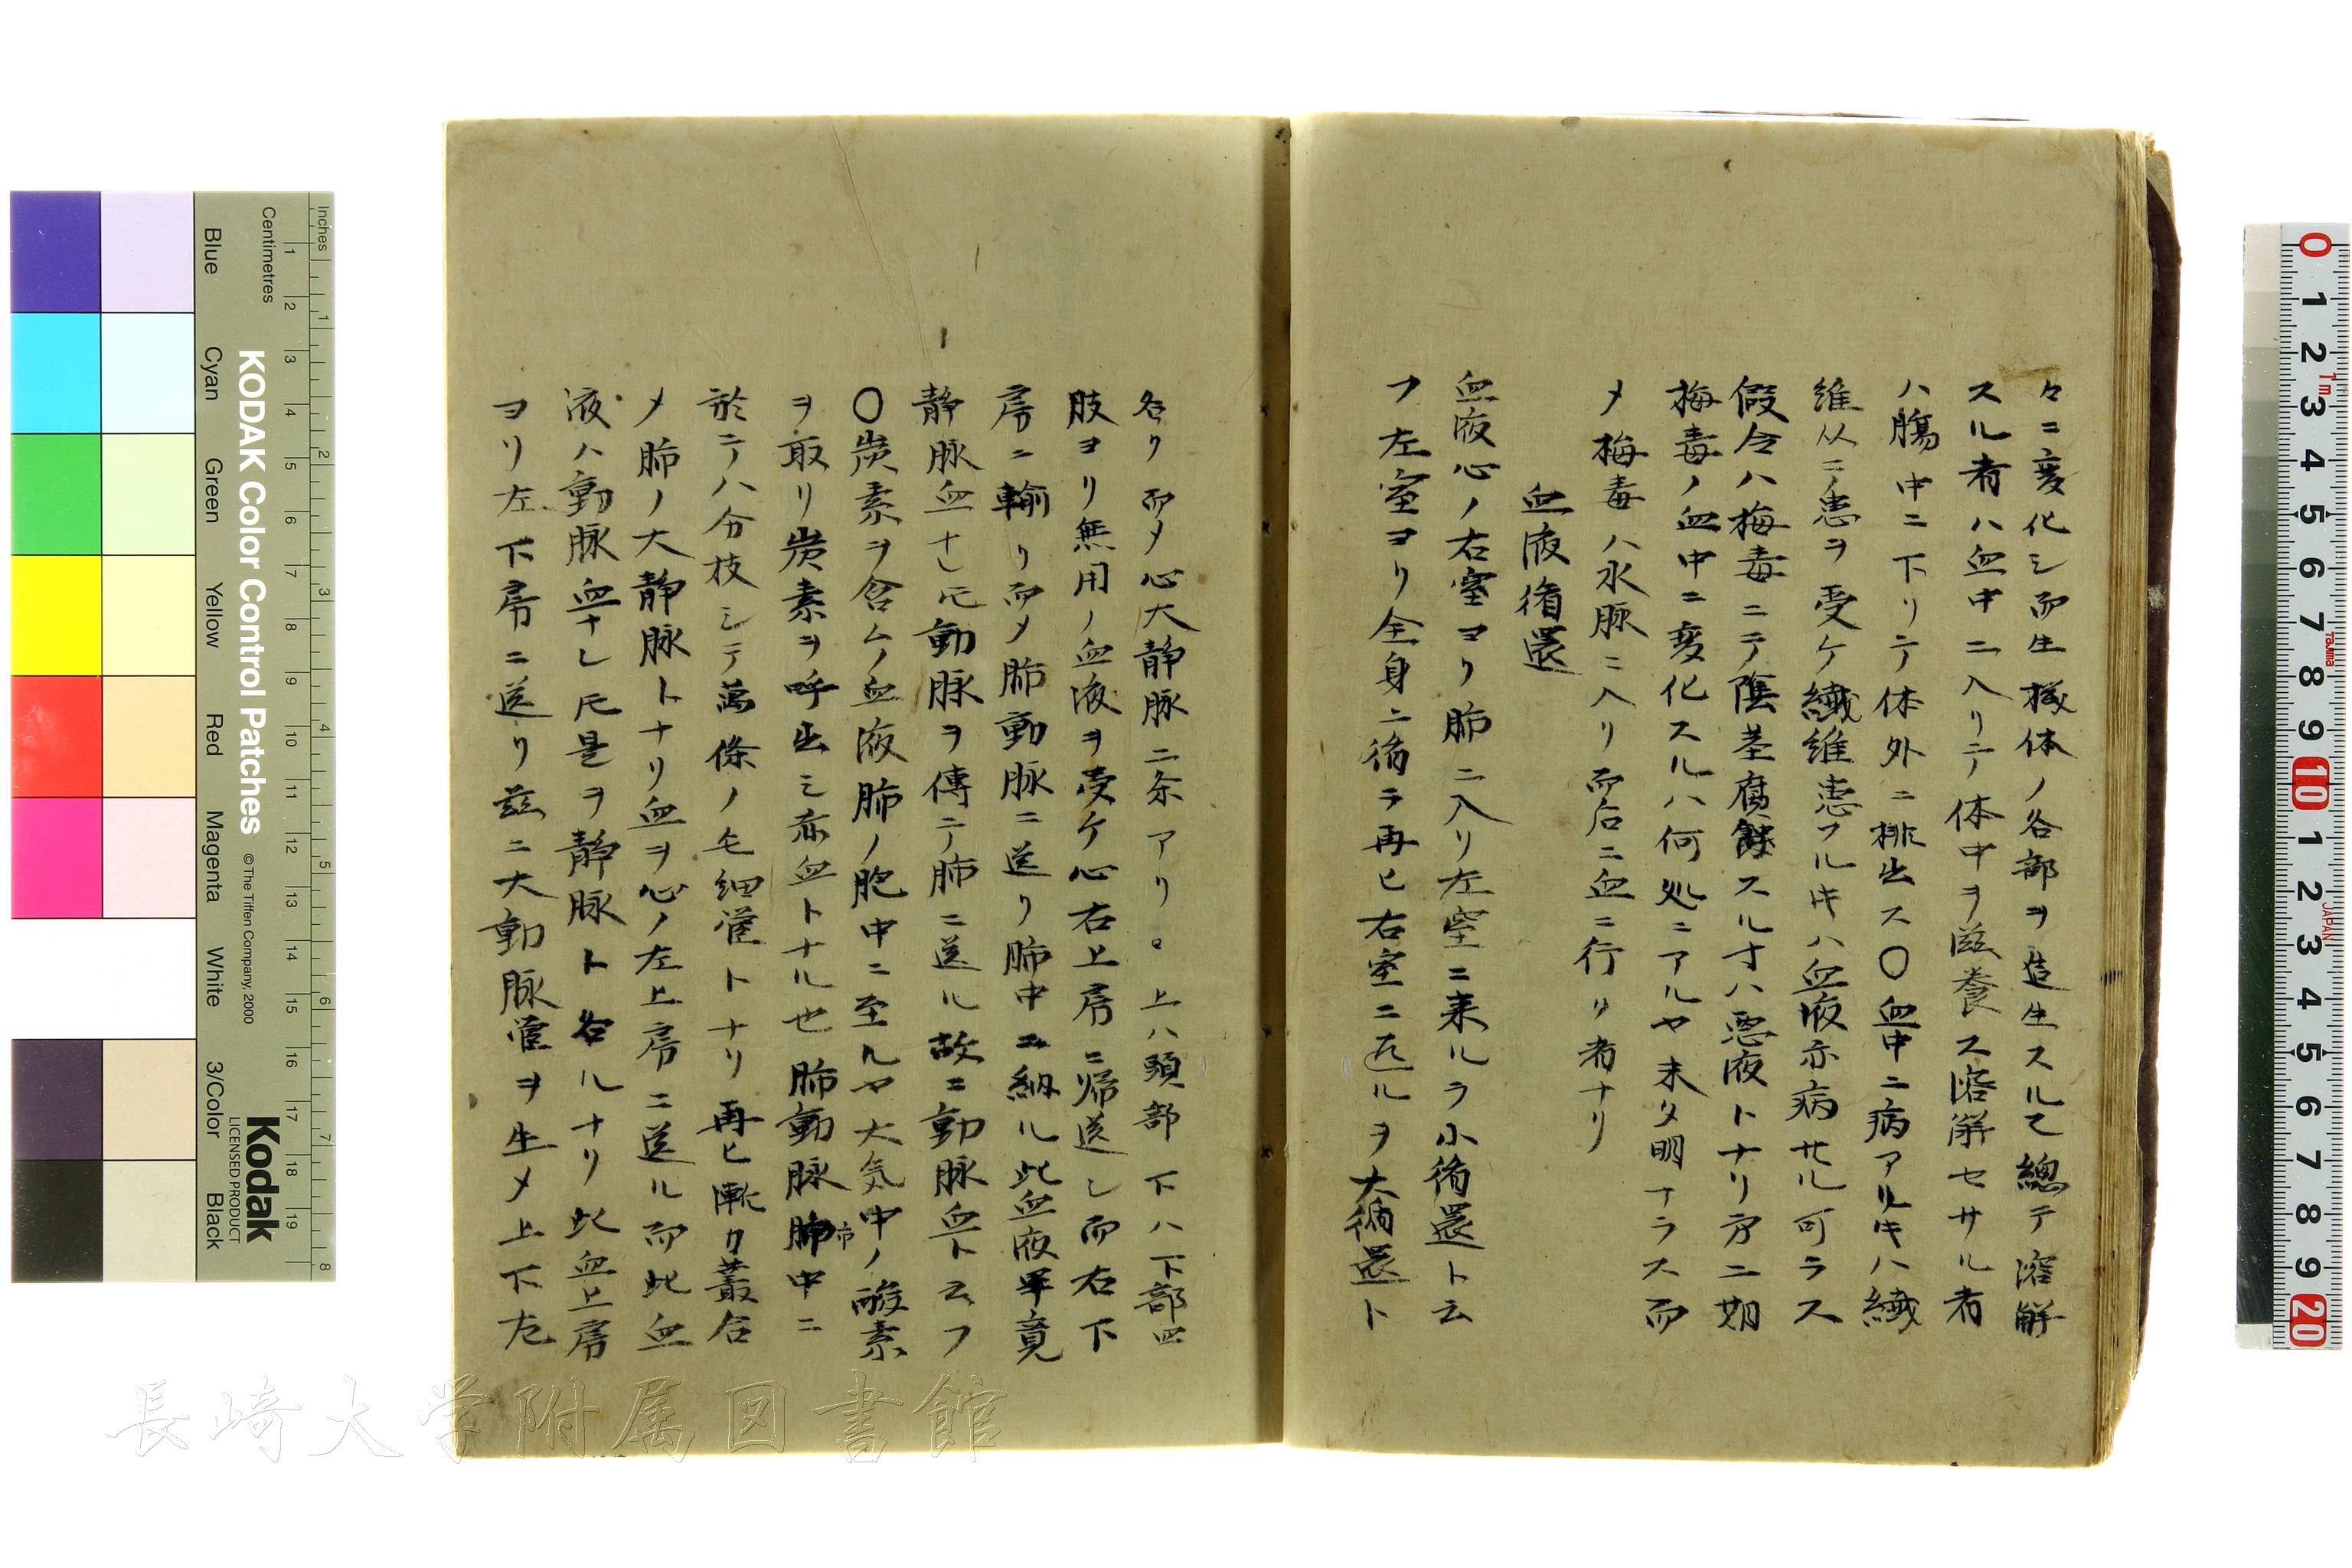 々ニ変化シ而生機体ノ各部ヲ造生スルヿ總テ溶解
スル者ハ血中ニ入リテ体中ヲ滋養ス溶解セサル者
ハ膓中ニ下リテ体外ニ排出ス〇血中ニ病アルキハ纎
維从テ患ヲ受ケ纎維患フルキハ血液亦病サル可ラス
假令ハ梅毒ニテ陰茎腐蝕スルオハ悪液トナリ
梅毒ノ血中ニ変化スルハ何処ニアルヤ未タ明ナラス而
メ梅毒ハ水脈ニ入リ而后ニ血ニ行ク者ナリ
血液循還
血液心ノ右室ヨリ肺ニ入リ左室ニ来ルヲ小循還ト云
フ左室ヨリ全身ニ循テ再ヒ右室ニ返ルヲ大循還ト
名ク而メ心大静脈二条アリ。上ハ頭部下ハ下部四
肢ヨリ無用ノ血液ヲ受ケ心右上房ニ帰送シ而右下
房ニ輸リ而メ肺動脈ニ送リ肺中ニ納ル此血液畢竟
静脈血ナレ𪜈動脈ヲ傳テ肺ニ送ル故ニ動脈血ト云フ
〇炭素ヲ含ムノ血液肺ノ胞中ニ至ルヤ大気中ノ酸素
ヲ取リ炭素ヲ呼出シ赤血トナル也肺動脈肺中ニ
於テハ分枝シテ萬條ノ毛細管トナリ再ヒ漸ク叢合
メ肺ノ大静脈トナリ血ヲ心ノ左上房ニ送ル而此血
液ハ動脈血ナレ𪜈是ヲ静脈ト名ルナリ此血上房
ヨリ左下房ニ送リ茲ニ大動脈管ヲ生メ上下左
KODAK Color Control Patches
© The Tiffen Company, 2000
Kodak
LICENSED PRODUCT
Inches
Centimetres
Blue
Cyan
Green
Yellow
Red
Magenta
White
3/Color
Black
長崎大学附属図書館